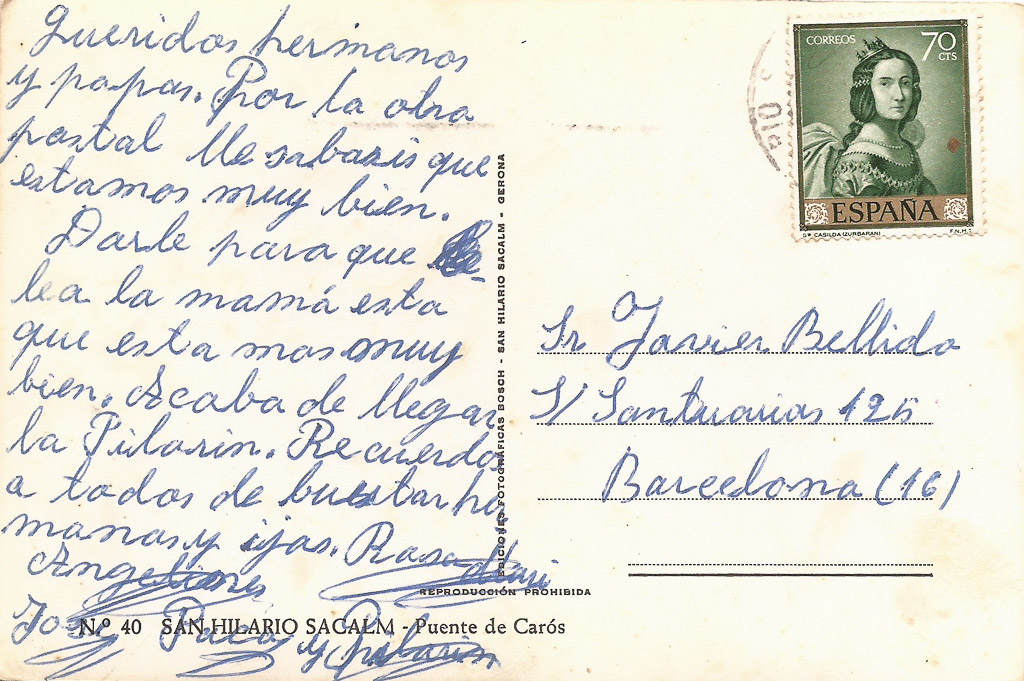 Queridos hermanos
y papas. Por la otra
postal lle sabaris que
estamos muy bien.
Darle para que
lea la mamá esta
que esta mos muy
bien. Acaba de llegar
la Pilarin. Recuerdo
a todos de buestar ha
manas y ijas. Rosa Mari
Angelines
José Paco y Pilarin
Nº 40 SAN HILARIO SACALM - Puente de Carós
EDICIONES FOTOGRÁFICAS BOSCH - SAN HILARIO SACALM - GERONA
REPRODUCCIÓN PROHIBIDA
CORREOS 70 CTS
ESPAÑA
Sᵗᵃ CASILDA (ZURBARAN) F.N.M.T.
DIC
Sr Javier Bellido
S/ Santuarias 125
Barcelona (16)